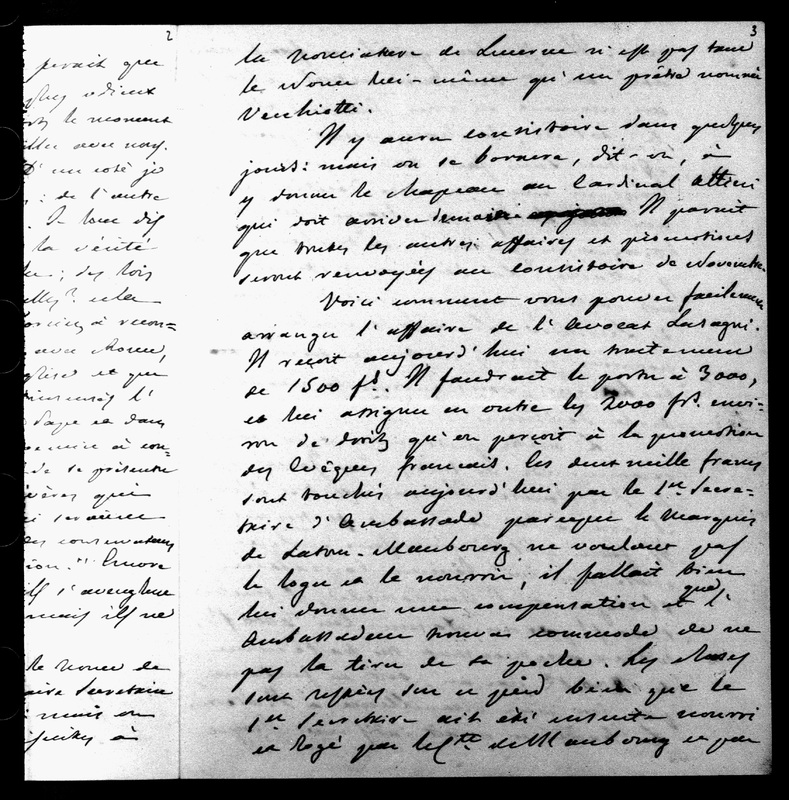 2
perait que
plus odieux
le moment
avec nous.
D'un coté je
; de l'autre
. Je leur dis
la vérité
; des lois
à recon=
avec Rome,
et que
l'
Pape et dans
à con=
de se présenter
qui
conservateurs
ion." Encore
ils s'aveuglent
mais ils ne
le nonce de
aire Secretaire
mais on
à
3
la nonciature de Lucerne n'est pas tant
le Nonce lui-même qu'un prêtre nommé
Vecchiotti.
Il y aura consistoire dans quelques
jours: mais on se bornera, dit-on, à
y donner le chapeau au Cardinal Altieri
qui doit arriver demain Il parait
que toutes les autres affaires et promotions
seront renvoyées au consistoire de Novembre.
Voici comment vous pouvez facilement
arranger l'affaire de l'avocat Lasagni.
Il reçoit aujourd'hui un traitement
de 1500 fs. Il faudrait le porter à 3000,
et lui assigner en outre les 2000 frs. envi-
ron de droits qu'on perçoit à la promotion
des Evêques français. Ces deux mille francs
sont touchés aujourd'hui par le 1er Secre-
taire d'Ambassade parceque le Marquis
de Latour-Maubourg ne voulant pas
le loger et le nourrir, il fallait bien
lui donner une compensation et que l'
Ambassadeur trouvas commode de ne
pas la tirer de sa poche. Les choses
sont restées sur ce pied bien que le
1er Secretaire ait été ensuite nourri
et logé par le Cte. de Maubourg et par